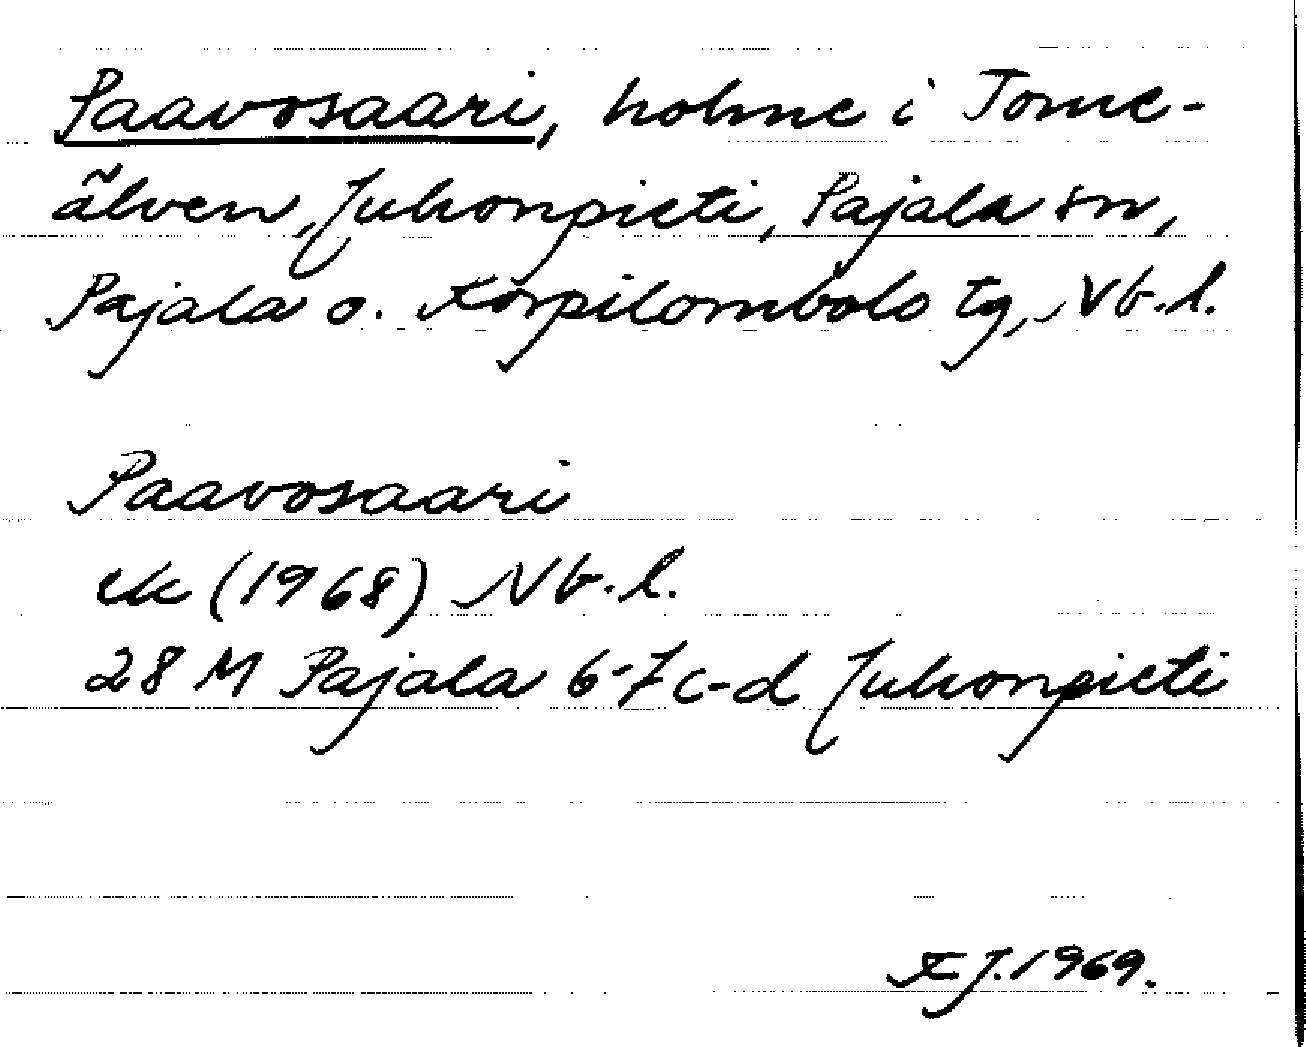 Paavosaari, holme i Torne-
älven, Juhonpieti, Pajala sn,
Pajala o. Korpilombolo tg, Nb. l.
Paavosaari
ek (1968) Nb. l.
28 M Pajala 6-7 c-d Juhonpieti
KJ. 1969.